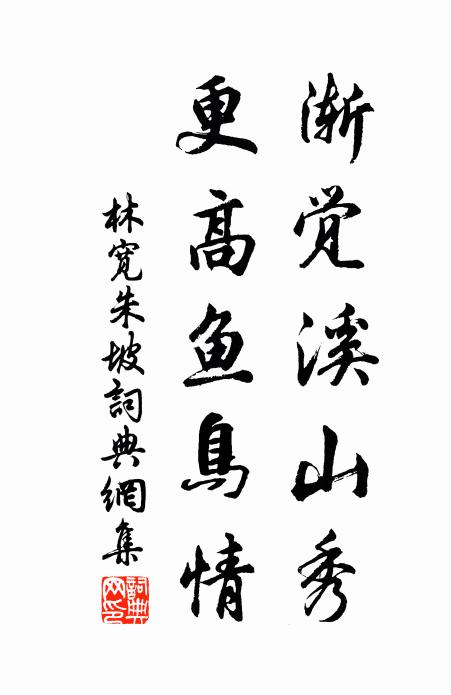 渐觉溪山秀
更高鱼鸟情
林寬朱坡詞典網集
詞典网印